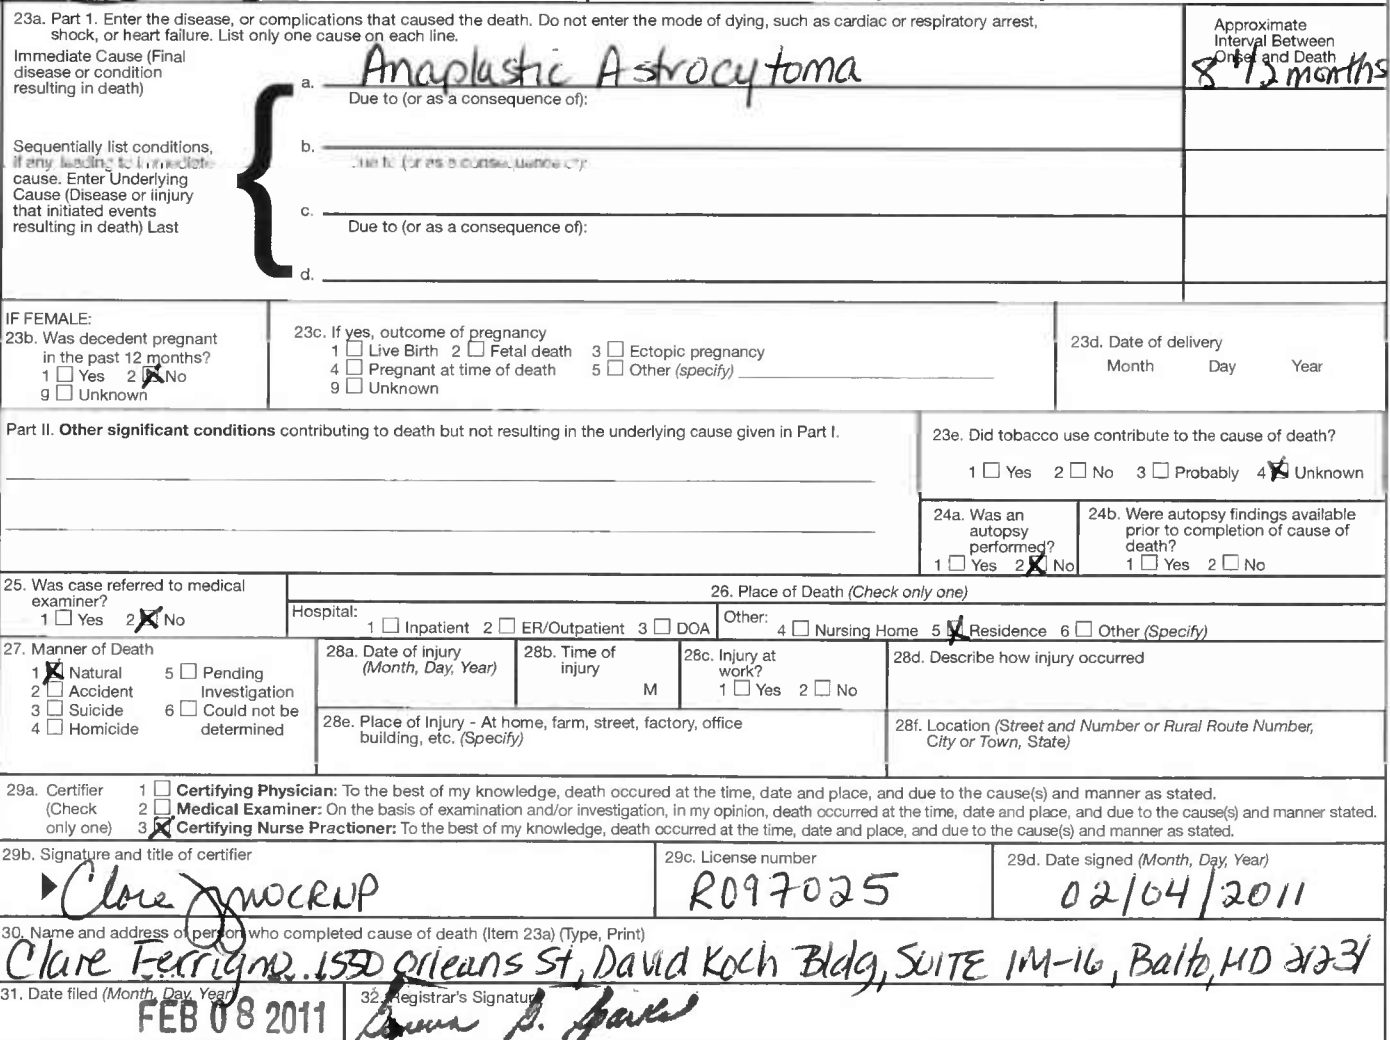 23a. Part 1. Enter the disease, or complications that caused the death. Do not enter the mode of dying, such as cardiac or respiratory arrest,
shock, or heart failure. List only one cause on each line.
Approximate
Interval Between
Onset and Death
Immediate Cause (Final
disease or condition
resulting in death)
a. Anaplastic Astrocytoma
8 1/2 months
Due to (or as a consequence of):
Sequentially list conditions,
b.
if any leading to immediate
Due to (or as a consequence of):
cause. Enter Underlying
Cause (Disease or iinjury
that initiated events
c.
resulting in death) Last
Due to (or as a consequence of):
d.
IF FEMALE:
23b. Was decedent pregnant
in the past 12 months?
1 Yes 2 No
9 Unknown
23c. If yes, outcome of pregnancy
1 Live Birth 2 Fetal death 3 Ectopic pregnancy
4 Pregnant at time of death 5 Other (specify)
9 Unknown
23d. Date of delivery
Month Day Year
Part II. Other significant conditions contributing to death but not resulting in the underlying cause given in Part I.
23e. Did tobacco use contribute to the cause of death?
1 Yes 2 No 3 Probably 4 Unknown
24a. Was an
autopsy
performed?
1 Yes 2 No
24b. Were autopsy findings available
prior to completion of cause of
death?
1 Yes 2 No
25. Was case referred to medical
examiner?
1 Yes 2 No
26. Place of Death (Check only one)
Hospital: 1 Inpatient 2 ER/Outpatient 3 DOA
Other: 4 Nursing Home 5 Residence 6 Other (Specify)
27. Manner of Death
1 Natural 5 Pending
2 Accident Investigation
3 Suicide 6 Could not be
4 Homicide determined
28a. Date of injury
(Month, Day, Year)
28b. Time of
injury
M
28c. Injury at
work?
1 Yes 2 No
28d. Describe how injury occurred
28e. Place of Injury - At home, farm, street, factory, office
building, etc. (Specify)
28f. Location (Street and Number or Rural Route Number,
City or Town, State)
29a. Certifier
(Check
only one)
1 Certifying Physician: To the best of my knowledge, death occured at the time, date and place, and due to the cause(s) and manner as stated.
2 Medical Examiner: On the basis of examination and/or investigation, in my opinion, death occurred at the time, date and place, and due to the cause(s) and manner stated.
3 Certifying Nurse Practioner: To the best of my knowledge, death occurred at the time, date and place, and due to the cause(s) and manner as stated.
29b. Signature and title of certifier
Clare CRNP
29c. License number
R097025
29d. Date signed (Month, Day, Year)
02/04/2011
30. Name and address of person who completed cause of death (Item 23a) (Type, Print)
Clare Ferrigno 1550 Orleans St, David Koch Bldg, SUITE 1M-16, Balto, MD 21231
31. Date filed (Month, Day, Year)
FEB 08 2011
32. Registrar's Signature